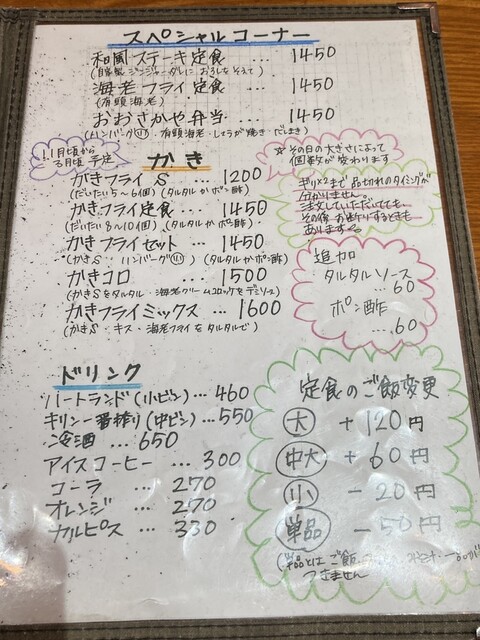 スペシャルコーナー
和風ステーキ定食 … 1450
(自家製ジンジャーダレにおろしをそえて)
海老フライ定食 … 1450
(有頭海老)
おおさかや弁当 … 1450
(ハンバーグ(小)・有頭海老・しょうが焼き・だしまき)
11月頃から
3月頃 予定
かき
※その日の大きさによって
個数が変わります
かきフライS … 1200
(だいたい5~6個)(タルタルかポン酢)
かきフライ定食 … 1450
(だいたい8~10個)(タルタルかポン酢)
かきフライセット … 1450
(かきS・ハンバーグ(小))(タルタルかポン酢)
かきコロ … 1500
(かきSをタルタル・海老クリームコロッケをデミソース)
かきフライミックス … 1600
(かきS・キス・海老フライをタルタルで)
ギリギリまで品切れのタイミングが
分かりません。
注文していただいてても、
その後お断りするときも
あります
追加
タルタルソース
…60
ポン酢
…60
ドリンク
ハートランド(小ビン)…460
キリン一番搾り(中ビン)…550
冷酒 … 650
アイスコーヒー … 300
コーラ … 270
オレンジ … 270
カルピス … 330
定食のご飯変更
大 +120円
中大 +60円
小 -20円
単品 -50円
(単品とはご飯
つきません